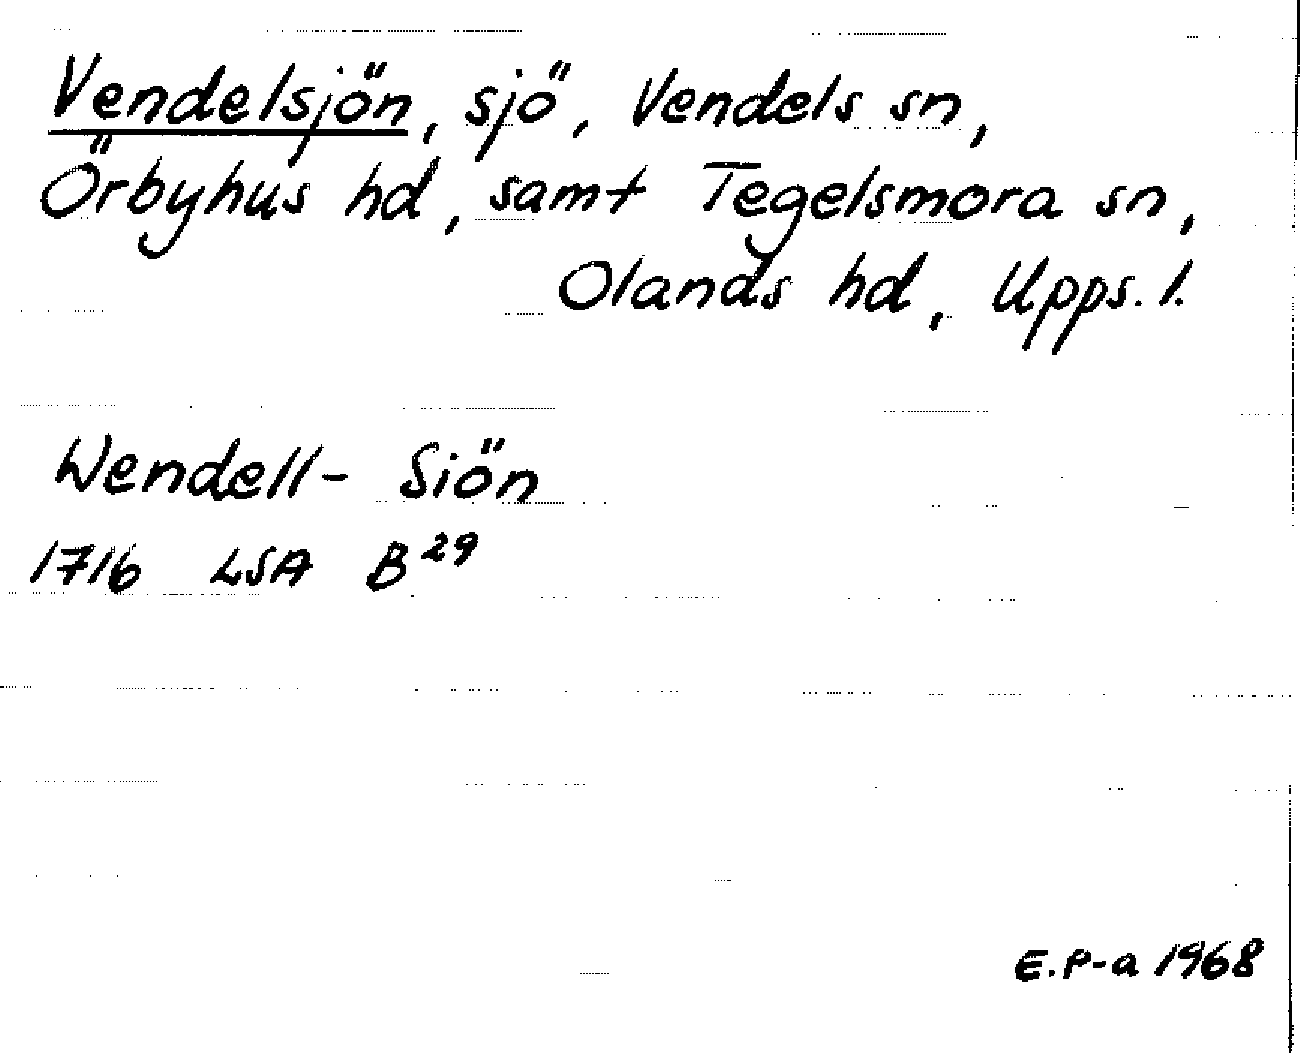 Vendelsjön, sjö, Vendels sn,
Örbyhus hd, samt Tegelsmora sn,
Olands hd, Upps. l.
Wendell- Siön
1716 LSA B²⁹
E.P-a 1968